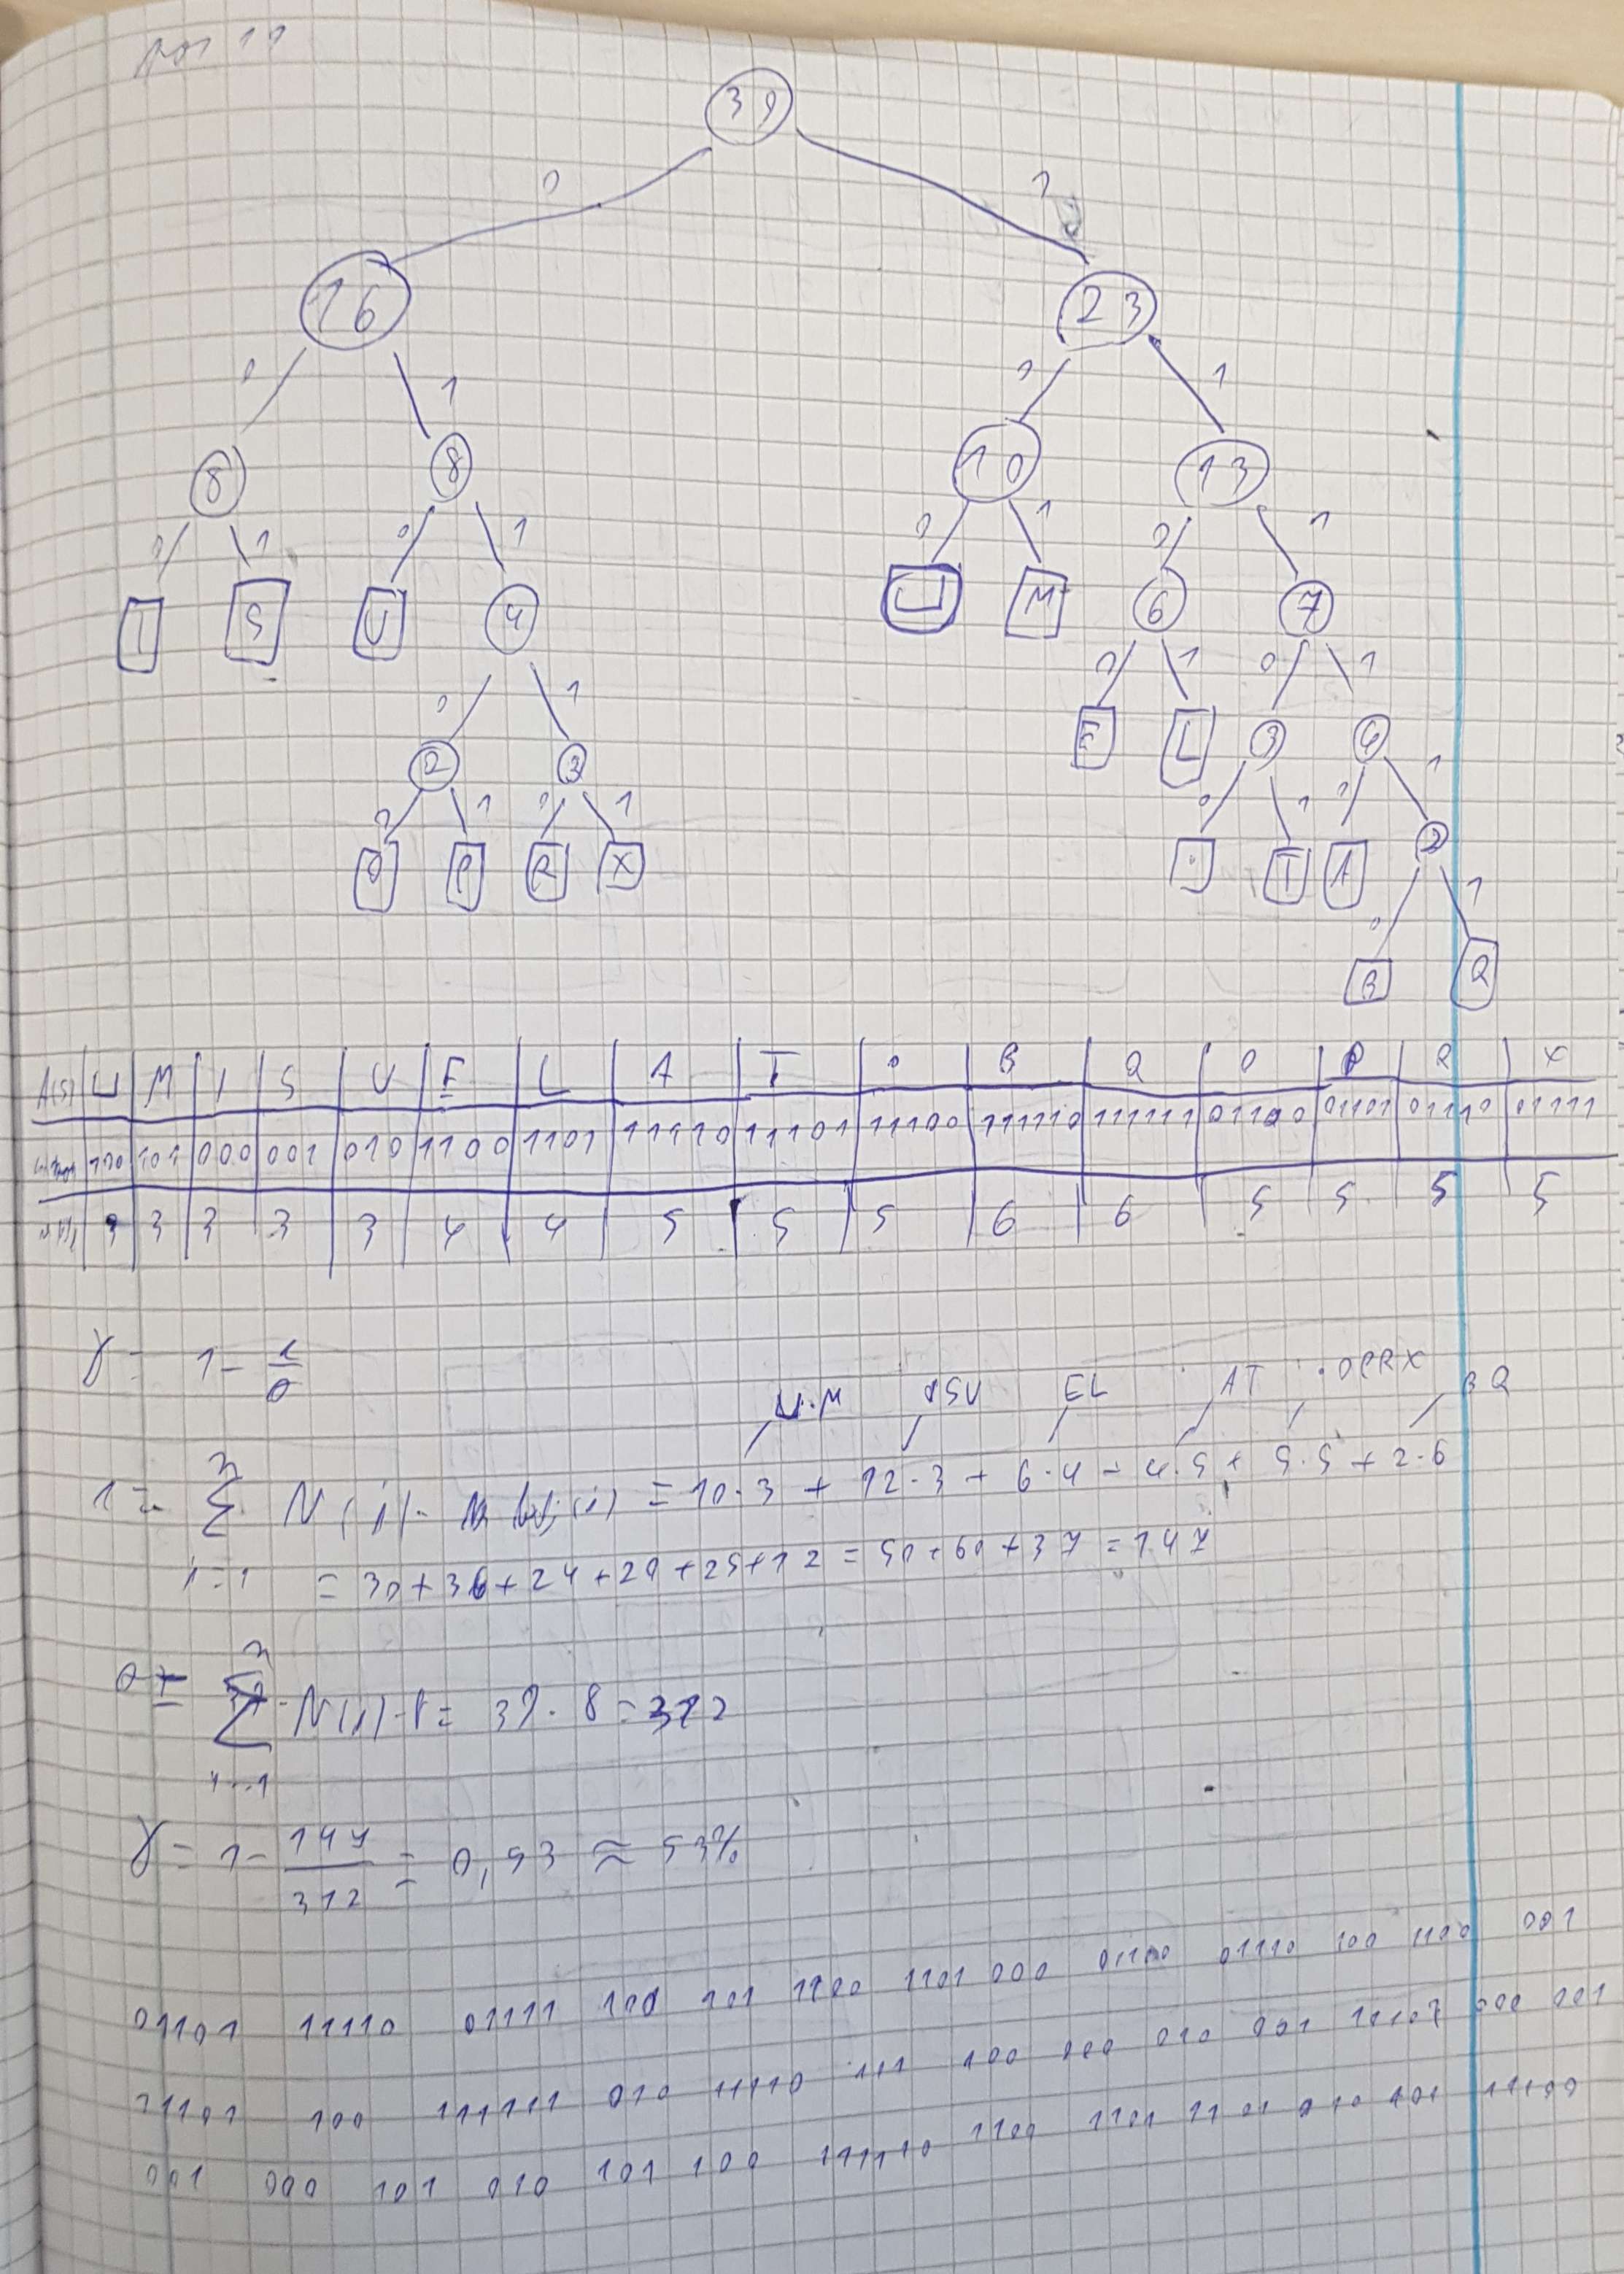 39
0 1
16 23
0 1 0 1
8 8 10 13
0 1 0 1 0 1 0 1
I S U 4 ⊔ M 6 7
0 1 0 1 0 1
2 3 E L 3 4
0 1 0 1 0 1 0 1
O P R X . T A 2
0 1
B Q
A(S) ⊔ M I S U E L A T . B Q O P R X
100 101 000 001 010 1100 1101 11110 11101 11100 111110 111111 01100 01101 01110 01111
3 3 3 3 3 4 4 5 5 5 6 6 5 5 5 5
γ = 1 - 1/0
⊔.M ISU EL AT .OPRX BQ
= 10·3 + 12·3 + 6·4 + 4·5 + 5·5 + 2·6
i=1 = 30+36+24+20+25+12 = 50+60+37 = 147
0 = Σ N(i)·8 = 39·8 = 312
i=1
γ = 1 - 147/312 = 0,53 ≈ 53%
01101 11110 01111 100 101 1100 1101 000 01100 01110 100 1100 001
11101 100 111111 010 11110 111 100 000 010 001 11101 000 001
001 000 101 010 101 100 111110 1100 1101 1101 010 101 11100